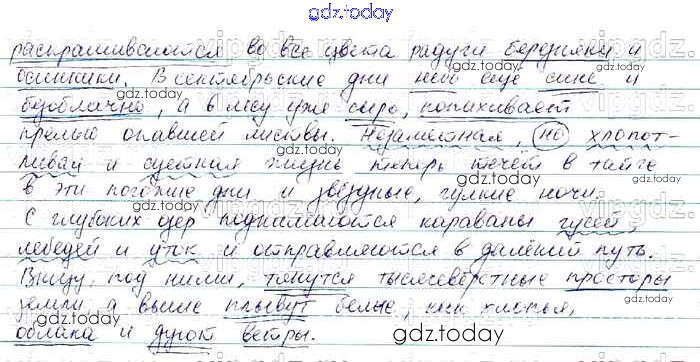 gdz.today
раскрашиваются во все цвета радуги березняки и
осинники. В сентябрьские дни небо ещё сине и
безоблачно, а в лесу уже сыро, попахивает
прелью опавшей листвы. Незаметная, но хлопот-
ливая и суетная жизнь теперь течёт в тайге
в эти погожие дни и звёздные, гулкие ночи.
С глубоких озер поднимаются караваны гусей,
лебедей и уток и отправляются в далёкий путь.
Внизу, под ними, тянутся тысячевёрстные просторы
земли, а выше плывут белые, как хлопья,
облака и дуют ветры.
gdz.today